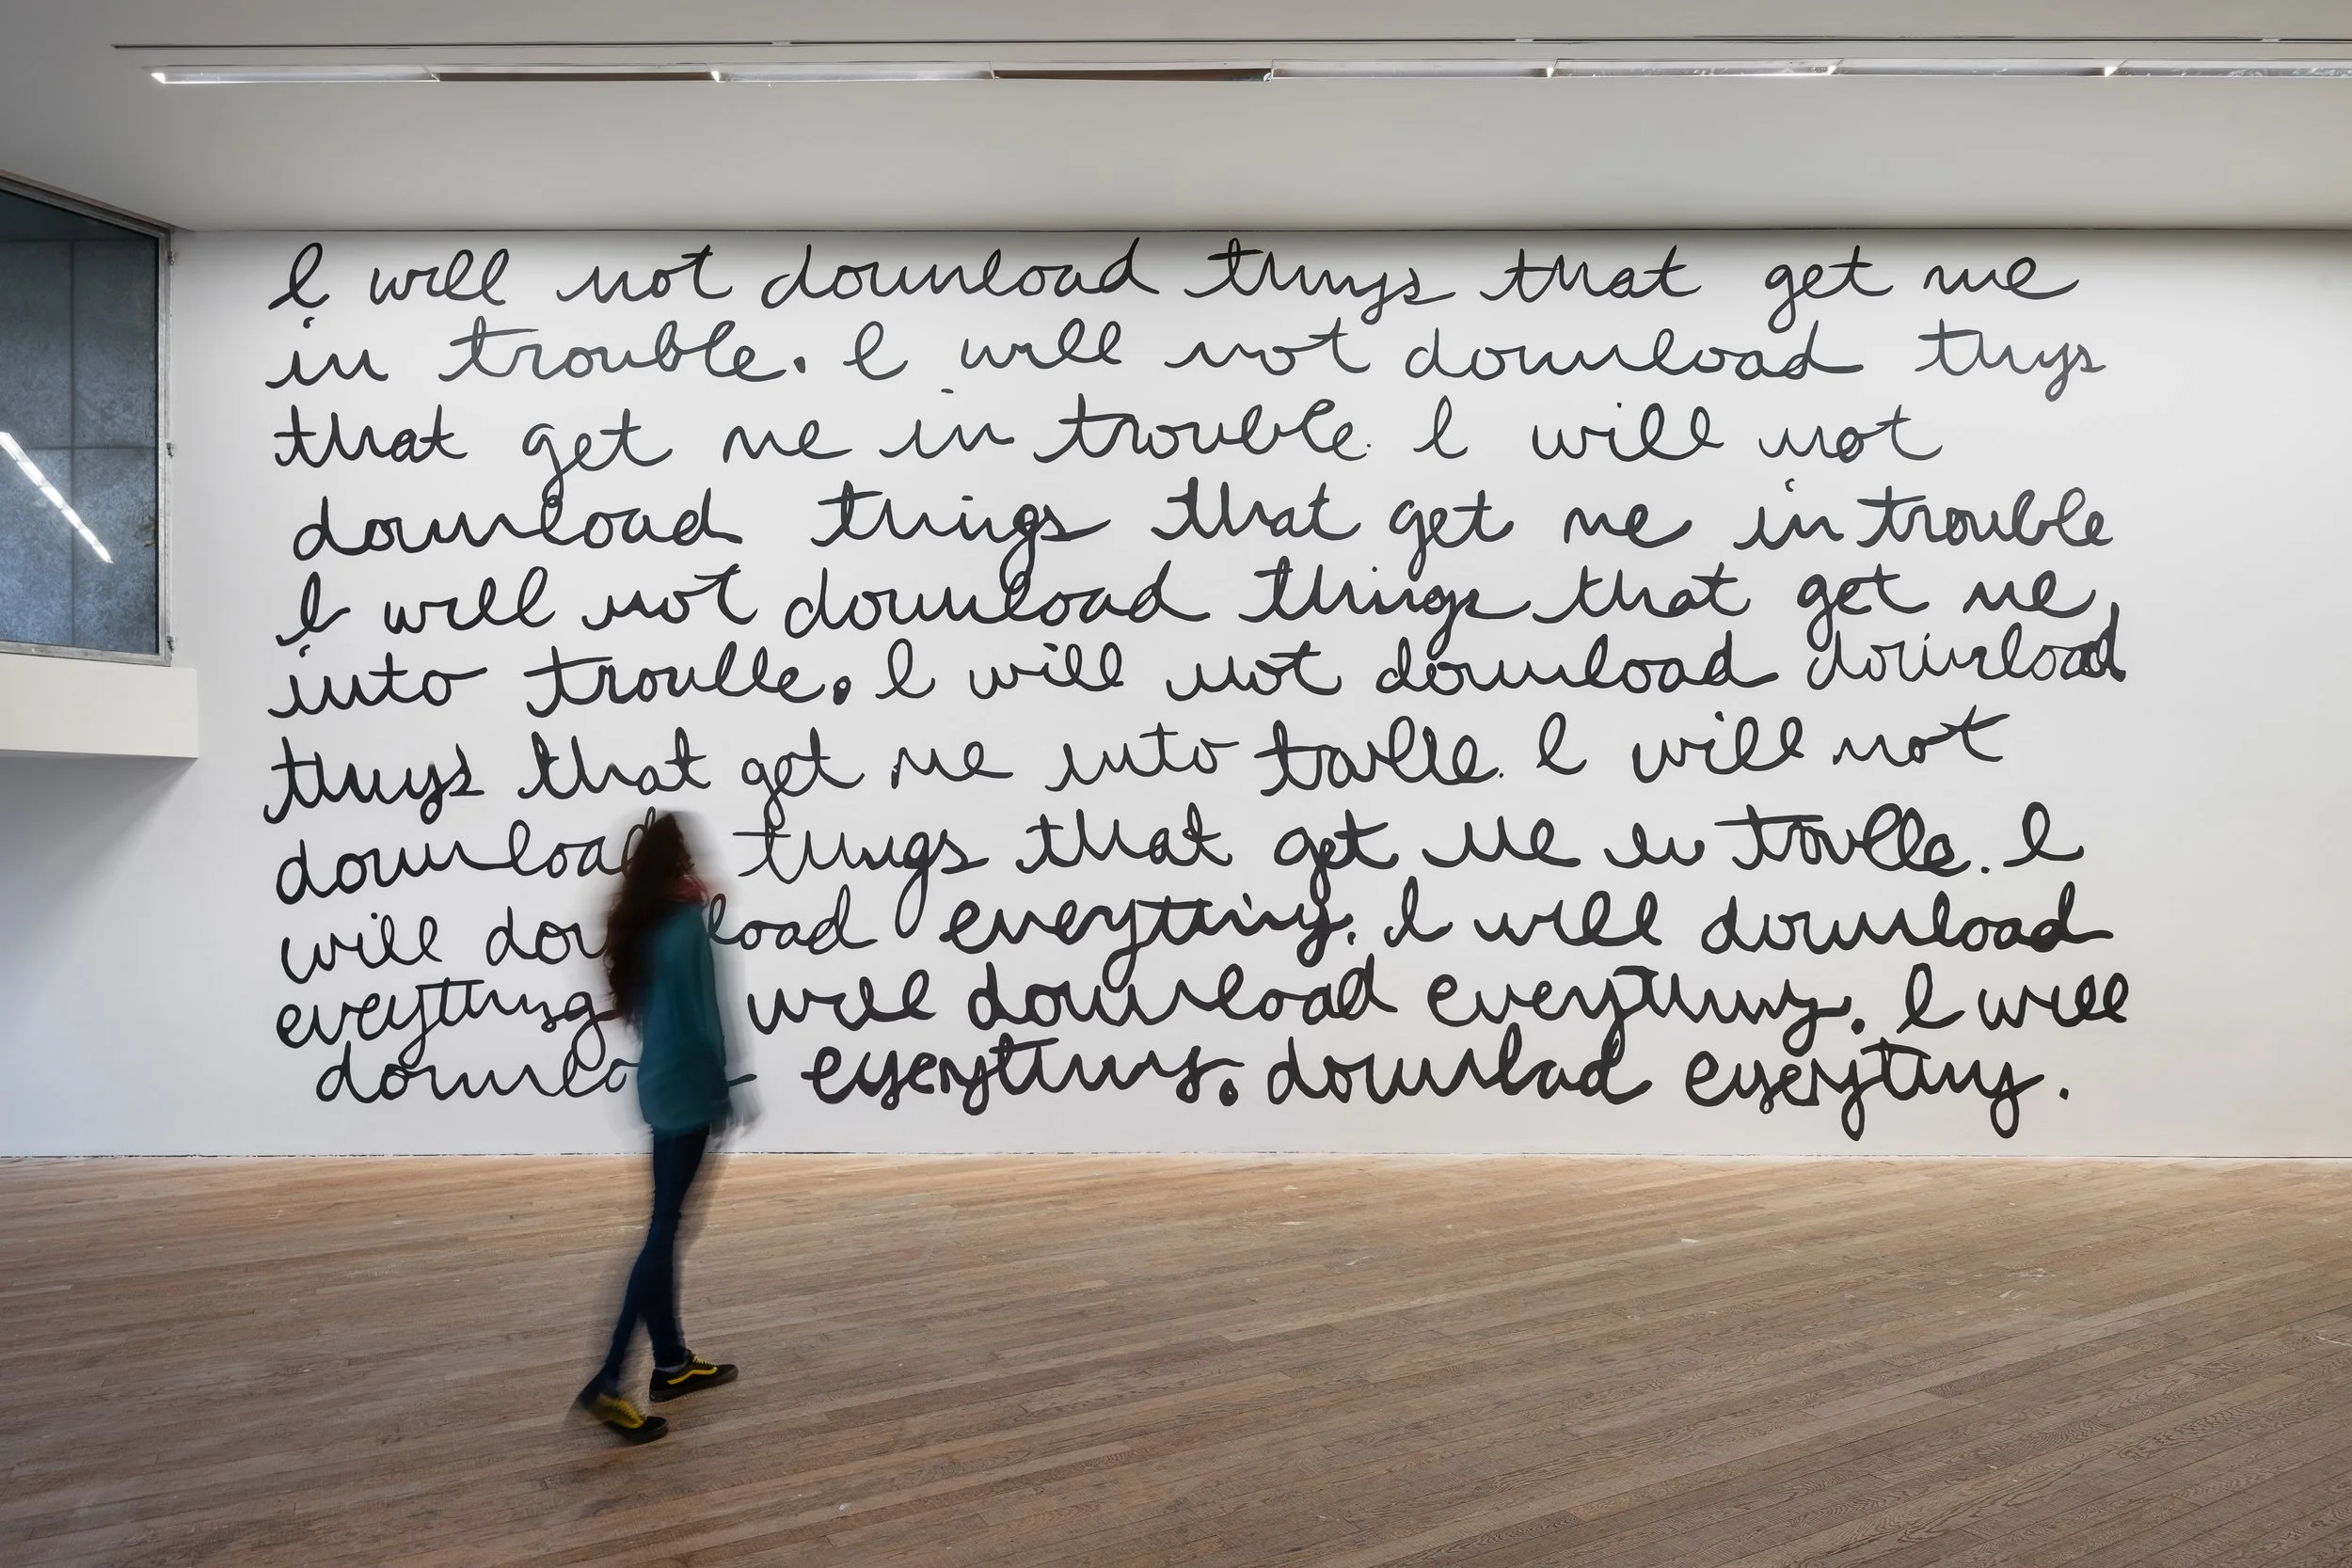 I will not download things that get me
in trouble. I will not download thigs
that get me in trouble. I will not
download things that get me in trouble
I will not download things that get me
into trouble. I will not download download
things that get me into trouble. I will not
download things that get me in trouble. I
will download everything. I will download
eveything will download everything. I will
download everything. download everything.